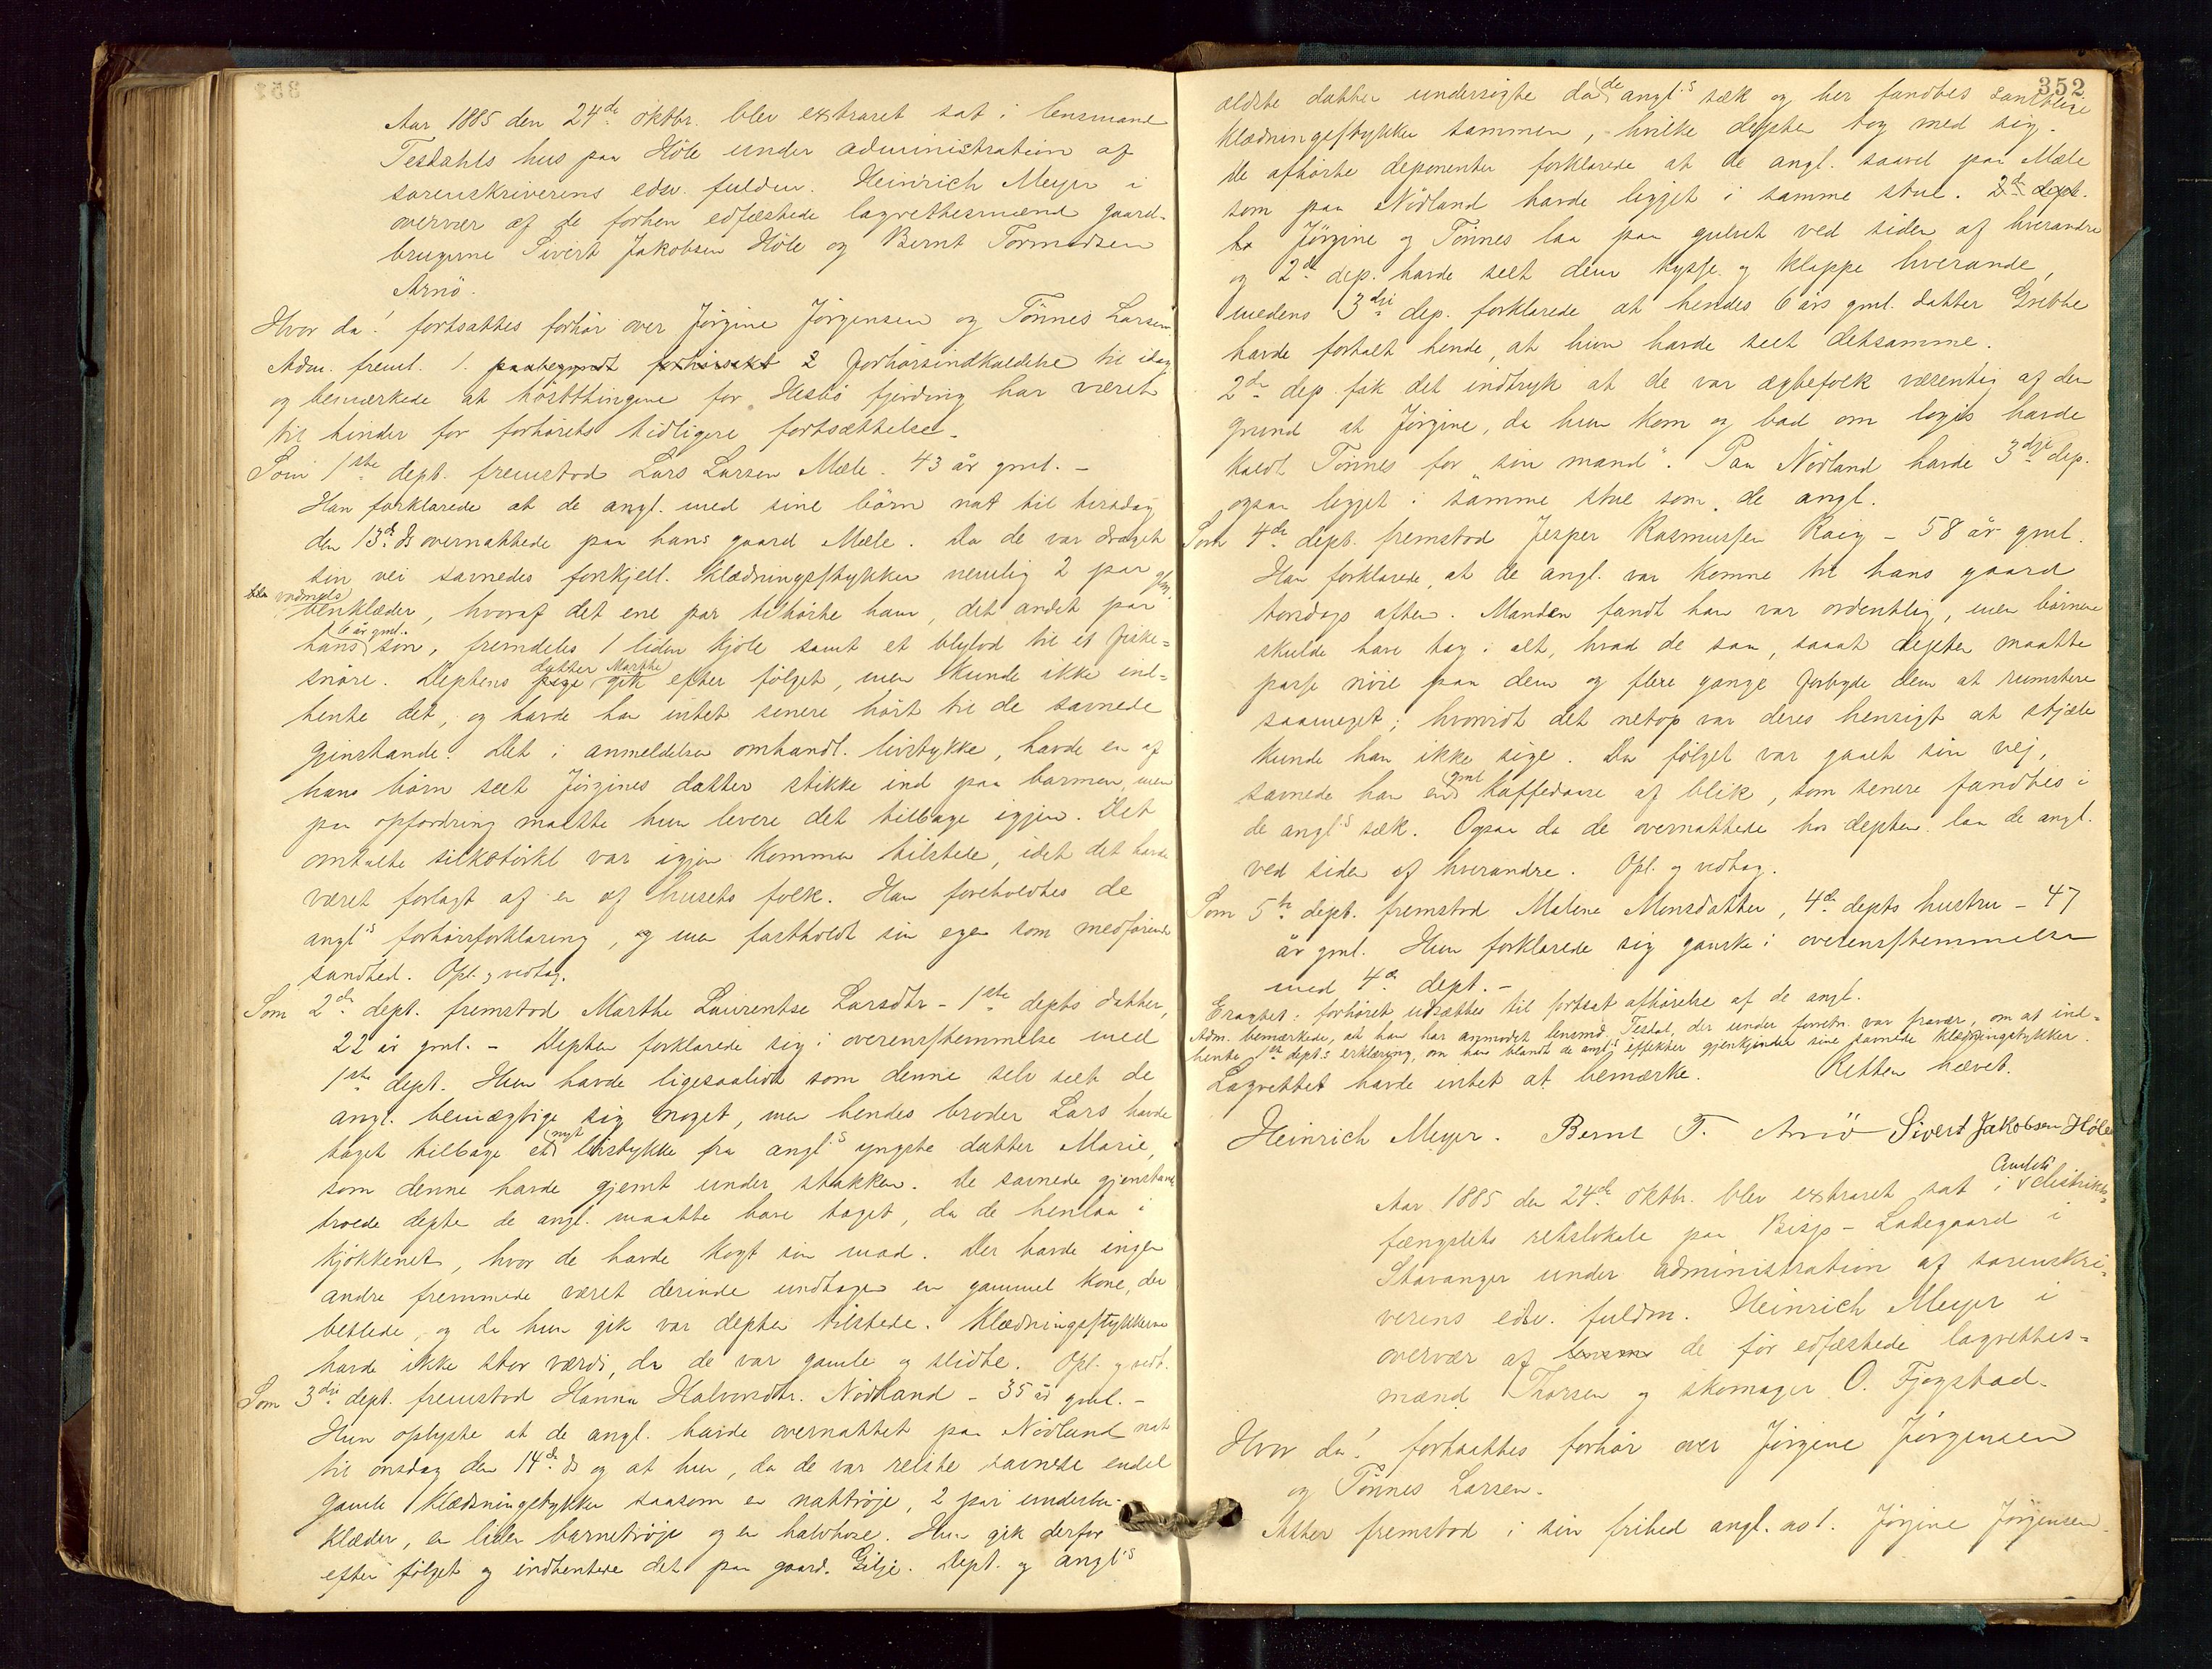 Aar 1885 den 24de oktbr. blev extraret sat i lensmand
Tesdahls hus paa Höle under administration af
sorenskriverens edsv. fuldm. Heinrich Meyer i
overvær af de forhen edfæstede lagrettesmænd gaard-
brugerne Sivert Jakobsen Höle og Bernt Tormodsen
Arnö.
Hvor da! fortsattes forhör over Jörgine Jörgensen og Tönnes Larsen
Adm. freml. 1. paabegyndt 2 forhörsindkaldelse til idag
og bemærkede at hösttingene for Hesbö fjerding har været
til hinder for forhörets tidligere fortsættelse.
Som 1ste dept. fremstod Lars Larsen Mæle. 43 år gml. -
Han forklarede at de angl. med sine börn nat til tirsdag
den 13de ds overnattede paa hans gaard Mæle. Da de var draget
sin vei savnedes forskjell. klædningsstykker nemlig 2 par gl.
vadmels
benklæder, hvoraf det ene par tilhörte ham, det andet par
6 år gml.
hans sön, fremdeles 1 liden kjole samt et blylod til et fiske=
snöre. Deptens datter Marthe
pige gik efter fölget, men kunde ikke ind=
hente det, og havde han intet senere hört til de savnede
gjenstande. Det i anmeldelsen omhandl. livstykke, havde en af
hans börn seet Jörgines datter stikke ind paa barmen, men
paa opfordring maatte hun levere det tilbage igjen. Det
omtalte silketörkl var igjen kommen tilstede, idet det havde
været forlagt af en af husets folk. Han foreholdtes de
angl's forhörsforklaring, og men fastholdt sin egen som medförende
sandhed. Opl. og vedtag.
Som 2de dept. fremstod Marthe Laurentse Larsdtr - 1ste depts datter,
22 år gml. - Depten forklarede sig i overensstemmelse med
1ste dept. Hun havde ligesaalidt som denne selv seet de
angl. bemægtige sig noget, men hendes broder Lars havde
taget tilbage et nyt livstykke fra angl's yngste datter Marie,
som denne havde gjemt under stakken. De savnede gjenstande
troede depten de angl. maatte have taget, da de henlaa i
kjökkenet, hvor de havde kogt sin mad. Der havde ingen
andre fremmede været derinde undtagen en gammel kone, der
betlede, og da hun gik var depten tilstede. Klædningsstykkerne
havde ikke stor værdi, da de var gamle og slidte. Opl. og vedt.
Som 3die dept. fremstod Hanna Halvorsdtr. Nödland - 35 år gml. -
Hun oplyste at de angl. havde overnattet paa Nödland nat
til onsdag den 14de ds og at hun, da de var reiste savnede endel
gamle klædningsstykker saasom en nattröje, 2 par underben-
klæder, en liden barnetröje og en halvhose. Hun gik derfor
efter fölget og indhentede det paa gaard. Gilje. Dept. og angl's
352
ældste datter undersögte da de angl's sæk og her fandtes samtlige
klædningsstykker sammen, hvilke depten tog med sig.
De afhörte deponenter forklarede at de angl. saavel paa Mæle
som paa Nödland havde ligget i samme stue. 2de dept.
Jörgine og Tönnes laa paa gulvet ved siden af hverandre
og 2de dep. havde seet dem kysse og klappe hverande,
medens 3die dep. forklarede at hendes 6 års gml. datter Grethe
havde fortalt hende, at hun havde seet detsamme.
2de dep. fik det indtryk at de var ægtefolk væsentlig af den
grund at Jörgine, da hun kom og bad om logis havde
kaldt Tönnes for "sin mand". Paa Nödland havde 3die dep.
ogsaa ligget i samme stue som de angl.
Som 4de dept. fremstod Jesper Rasmussen Raeg - 58 år gml.
Han forklarede, at de angl. var komne til hans gaard
torsdags aften. Manden fandt han var ordentlig, men börnene
skulde have tag i alt, hvad de saa, saaat depten maatte
passe nöie paa dem og flere gange forbyde dem at rumstere
saameget; hvorvidt det netop var deres hensigt at stjæle
kunde han ikke sige. Da fölget var gaaet sin vej,
savnede han en gml kaffedaase af blik, som senere fandtes i
de angl's sæk. Ogsaa da de overnattede hos depten laa de angl.
ved siden af hverandre. Opl. og vedtag.
Som 5te dept. fremstod Malene Monsdatter, 4de depts hustru - 47
år gml. Hun forklarede sig ganske i overensstemmelse
med 4de dept. -
Eragtet: forhöret udsættes til fortsat afhörelse af de angl.
Adm. bemærkede, at han har anmodet lensmd. Tesdal, der under forretn. var fravær, om at ind=
hente 1ste dept:s erklæring, om han blandt de angl's effekter gjenkjender sine savnede klædningsstykker.
Lagrettet havde intet at bemærke. Retten hævet.
Heinrich Meyer. Bernt T. Arnö Sivert Jakobsen Höle
Aar 1885 den 24de oktbr. blev extraret sat i Amtets distrikts=
fængslets retslokale paa Bisp-Ladegaard i
Stavanger under administration af sorenskri=
verens edsv. fuldm. Heinrich Meyer i
overvær af de för edfæstede lagrettes=
mænd Thorsen og skomager O. Fjogstad.
Hvor da! fortsattes forhör over Jörgine Jörgensen
og Tönnes Larsen.
Atter fremstod i sin frihed angl. no 1. Jörgine Jörgensen.